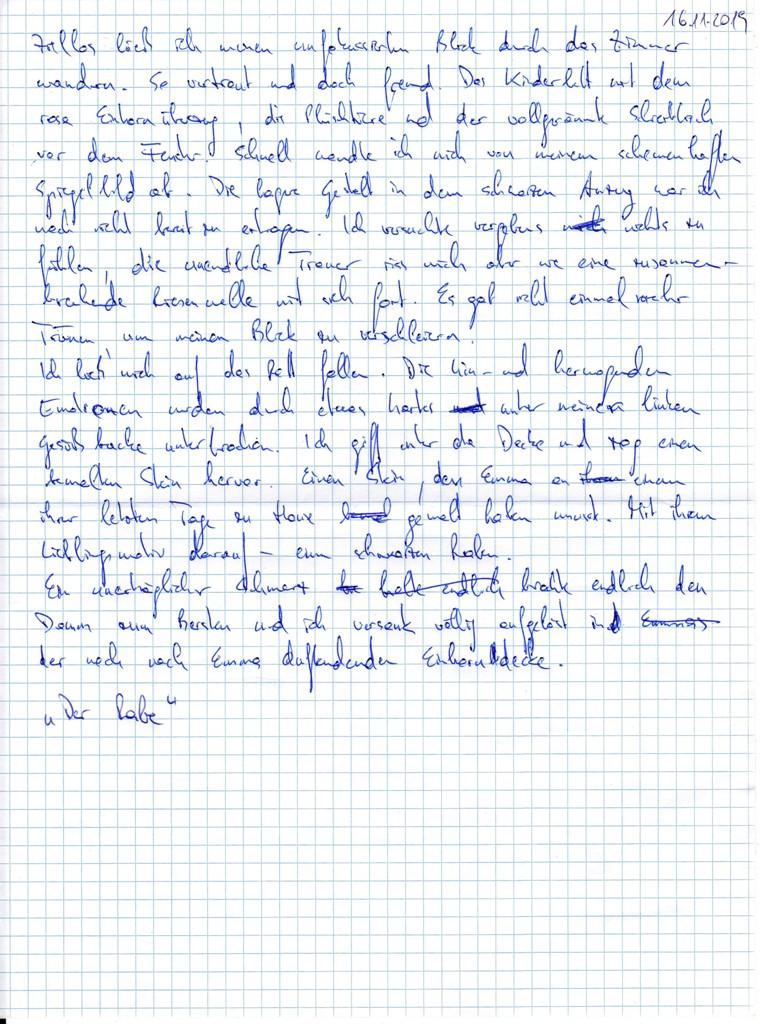 16.11.2019
Ziellos ließ ich meinen unfokussierten Blick durch das Zimmer
wandern. So vertraut und doch fremd. Das Kinderbett mit dem
rosa Einhornüberzug, die Plüschtiere und der vollgeräumte Schreibtisch
vor dem Fenster. Schnell wandte ich mich von meinem schemenhaften
Spiegelbild ab. Die hagere Gestalt in dem schwarzen Anzug war ich
noch nicht bereit zu ertragen. Ich versuchte vergebens nichts zu
fühlen, die unendliche Trauer riss mich aber wie eine zusammen-
brechende Riesenwelle mit sich fort. Es gab nicht einmal mehr
Tränen, um meinen Blick zu verschleiern.
Ich ließ mich auf das Bett fallen. Die hin- und herwogenden
Emotionen wurden durch etwas hartes unter meiner linken
Gesäßbacke unterbrochen. Ich griff unter die Decke und zog einen
bemalten Stein hervor. Einen Stein, den Emma an einem
ihrer letzten Tage zu Hause gemalt haben musste. Mit ihrem
Lieblingsmotiv darauf - einem schwarzen Raben.
Ein unerträglicher Schmerz brachte endlich den
Damm zum Bersten und ich versank völlig aufgelöst in
der noch nach Emma duftendenden Einhorndecke.
„Der Rabe“